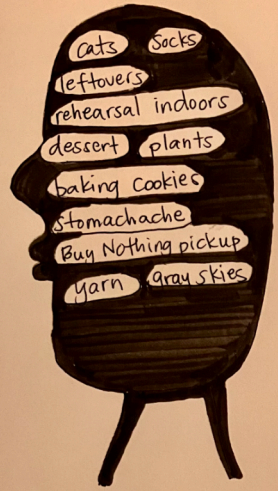 cats socks
leftovers
rehearsal indoors
dessert plants
baking cookies
stomachache
Buy Nothing pickup
yarn gray skies